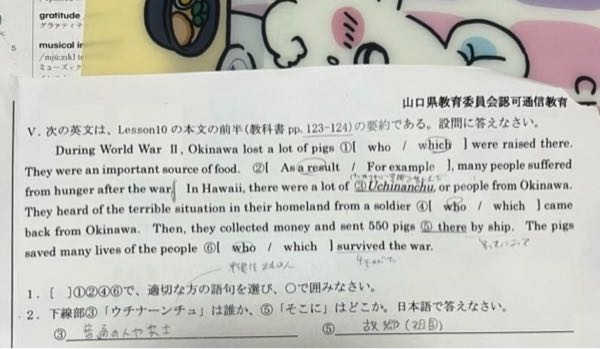 gratitude
グラァティテ
musical in
/mjúːzɪkl ɪn
ミューズィカ
山口県教育委員会認可通信教育
V. 次の英文は、Lesson10 の本文の前半(教科書 pp. 123-124) の要約である。設問に答えなさい。
During World War II, Okinawa lost a lot of pigs ①[ who / which ] were raised there.
They were an important source of food. ②[ As a result / For example ], many people suffered
from hunger after the war. In Hawaii, there were a lot of ③Uchinanchu, or people from Okinawa.
They heard of the terrible situation in their homeland from a soldier ④[ who / which ] came
back from Okinawa. Then, they collected money and sent 550 pigs ⑤ there by ship. The pigs
saved many lives of the people ⑥[ who / which ] survived the war.
1. [ ]①②④⑥で、適切な方の語句を選び、○で囲みなさい。
2. 下線部③「ウチナーンチュ」は誰か、⑤「そこに」はどこか。日本語で答えなさい。
③ 普通の人や兵士 ⑤ 故郷